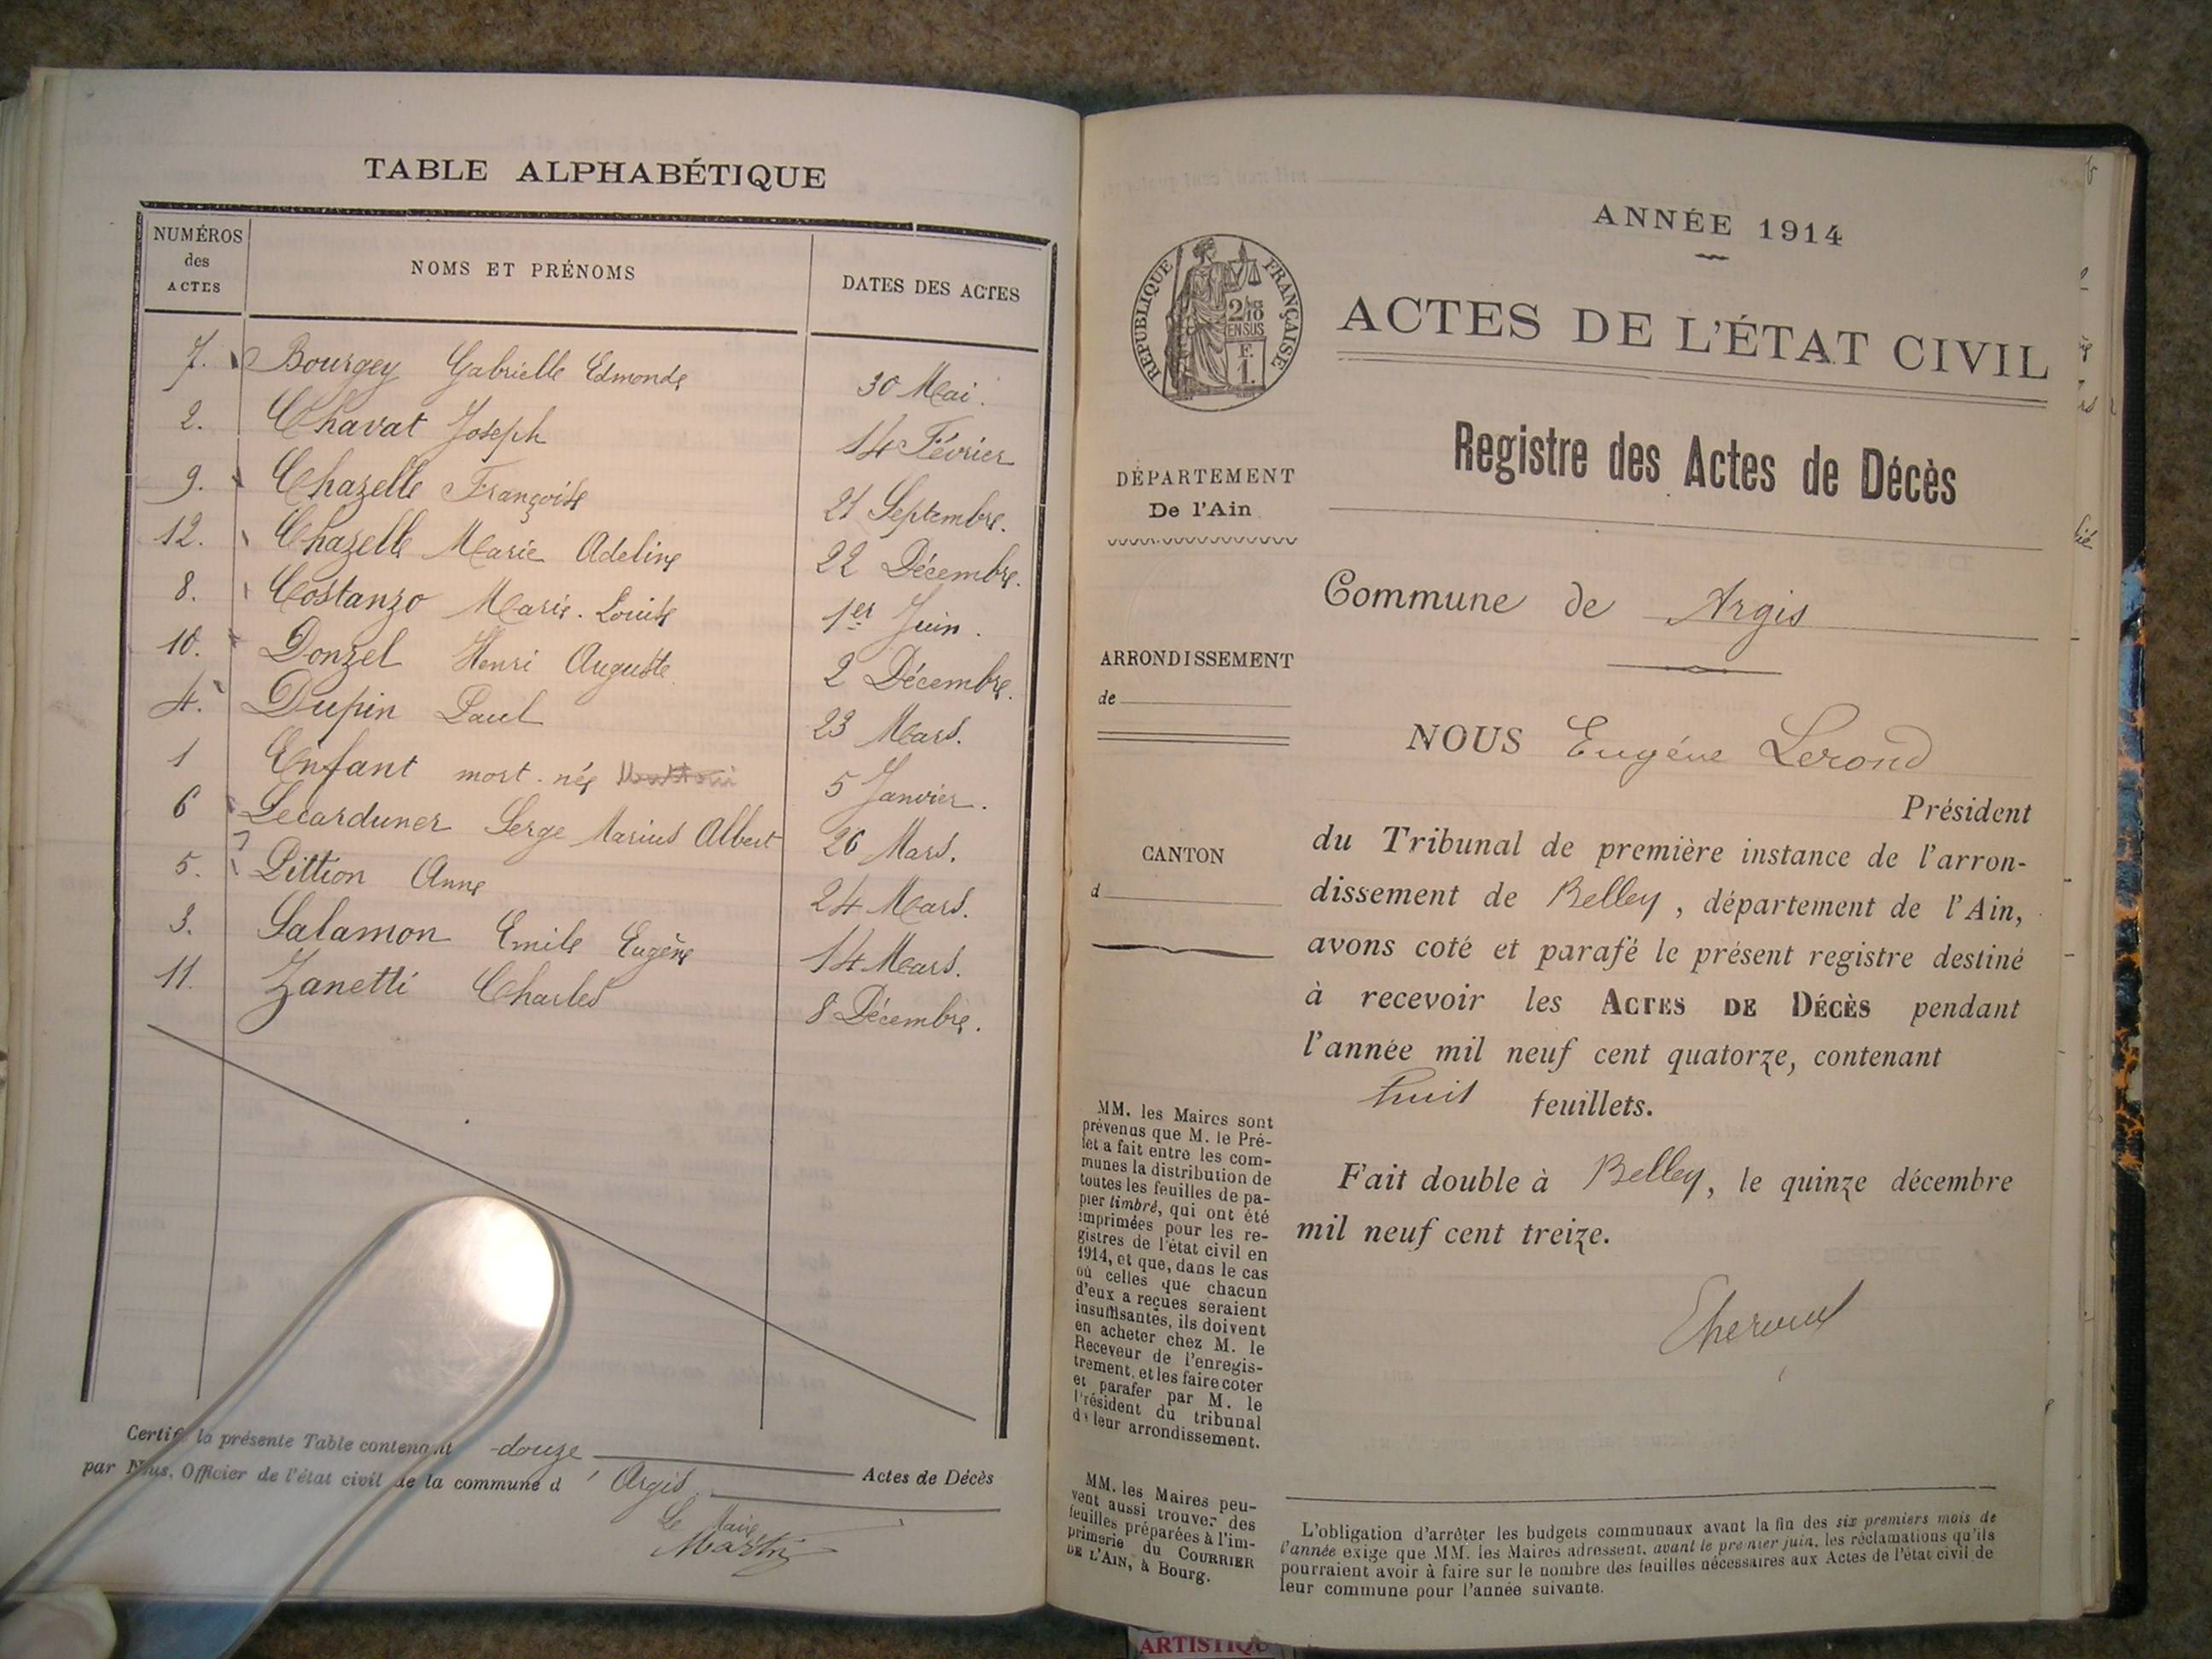 TABLE ALPHABÉTIQUE
NUMÉROS des ACTES
NOMS ET PRÉNOMS
DATES DES ACTES
7. Bourgey Gabrielle Edmonde 30 Mai.
2. Chavat Joseph 14 Février
9. Chazelle Françoise 21 Septembre.
12. Chazelle Marie Adeline 22 Décembre.
8. Costanzo Marie. Louise 1er Juin.
10. Donzel Henri Auguste 2 Décembre.
4. Dupin Paul 23 Mars.
1 Enfant mort-né 5 Janvier.
6 Lecarduner Serge Marius Albert 26 Mars.
5. Pittion Anne 24 Mars.
3. Salamon Emile Eugène 14 Mars.
11. Zanetti Charles 8 Décembre.
Certifié la présente Table contenant douze Actes de Décès
par Nous, Officier de l'état civil de la commune d'Argis
Le Maire
ANNÉE 1914
RÉPUBLIQUE FRANÇAISE
2/10
EN SUS
F.
1.
ACTES DE L'ÉTAT CIVIL
Registre des Actes de Décès
DÉPARTEMENT
De l'Ain
ARRONDISSEMENT
de
CANTON
d
MM. les Maires sont
prévenus que M. le Pré-
fet a fait entre les com-
munes la distribution de
toutes les feuilles de pa-
pier timbré, qui ont été
imprimées pour les re-
gistres de l'état civil en
1914, et que, dans le cas
où celles que chacun
d'eux a reçues seraient
insuffisantes, ils doivent
en acheter chez M. le
Receveur de l'enregis-
trement, et les faire coter
et parafer par M. le
Président du tribunal
de leur arrondissement.
MM. les Maires peu-
vent aussi trouver des
feuilles préparées à l'im-
primerie du COURRIER
DE L'AIN, à Bourg.
Commune de Argis
NOUS Eugène Lerond
Président
du Tribunal de première instance de l'arron-
dissement de Belley, département de l'Ain,
avons coté et parafé le présent registre destiné
à recevoir les ACTES DE DÉCÈS pendant
l'année mil neuf cent quatorze, contenant
huit feuillets.
Fait double à Belley, le quinze décembre
mil neuf cent treize.
L'obligation d'arrêter les budgets communaux avant la fin des six premiers mois de
l'année exige que MM. les Maires adressent, avant le premier juin, les réclamations qu'ils
pourraient avoir à faire sur le nombre des feuilles nécessaires aux Actes de l'état civil de
leur commune pour l'année suivante.
ARTISTIQU